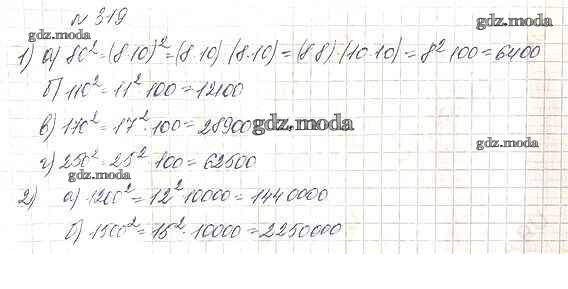 № 319
gdz.moda
gdz.moda
1) а) 80² = (8·10)² = (8·10)·(8·10) = (8·8)·(10·10) = 8²·100 = 6400
б) 110² = 11²·100 = 12100
в) 170² = 17²·100 = 28900
gdz.moda
gdz.moda
г) 250² = 25²·100 = 62500
gdz.moda
2) а) 1200² = 12²·10000 = 1440000
б) 1500² = 15²·10000 = 2250000